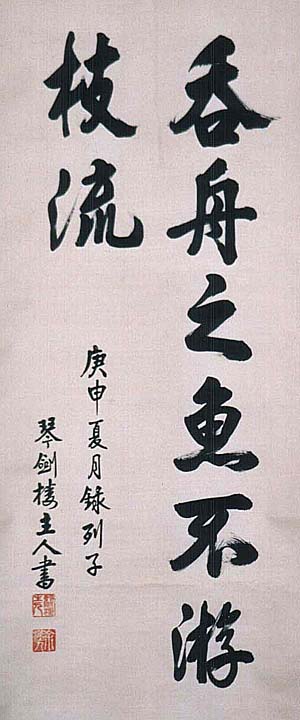 吞舟之魚不游
枝流
庚申夏月錄列子
琴劍樓主人書